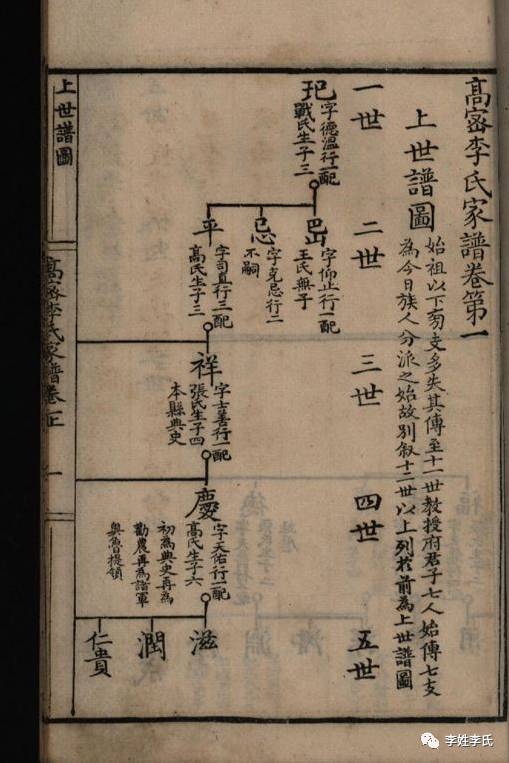 高密李氏家譜卷第一
上世譜圖
始祖以下旁支多失其傳至十一世教授府君子七人始傳七支
為今日族人分派之始故別叙十二世以上列於前為上世譜圖
一世
二世
三世
四世
五世
玘
字德溫行一配
戰氏生子三
岊
字仰止行一配
王氏無子
忌
字克忌行二
不嗣
平
字司直行三配
高氏生子三
祥
字士善行一配
張氏生子四
本縣典史
慶
字天佑行一配
高氏生子六
初為典史再為
勸農再為諸軍
奧魯提領
滋
潤
仁貴
上世譜圖
高密李氏家譜卷
一
李姓李氏